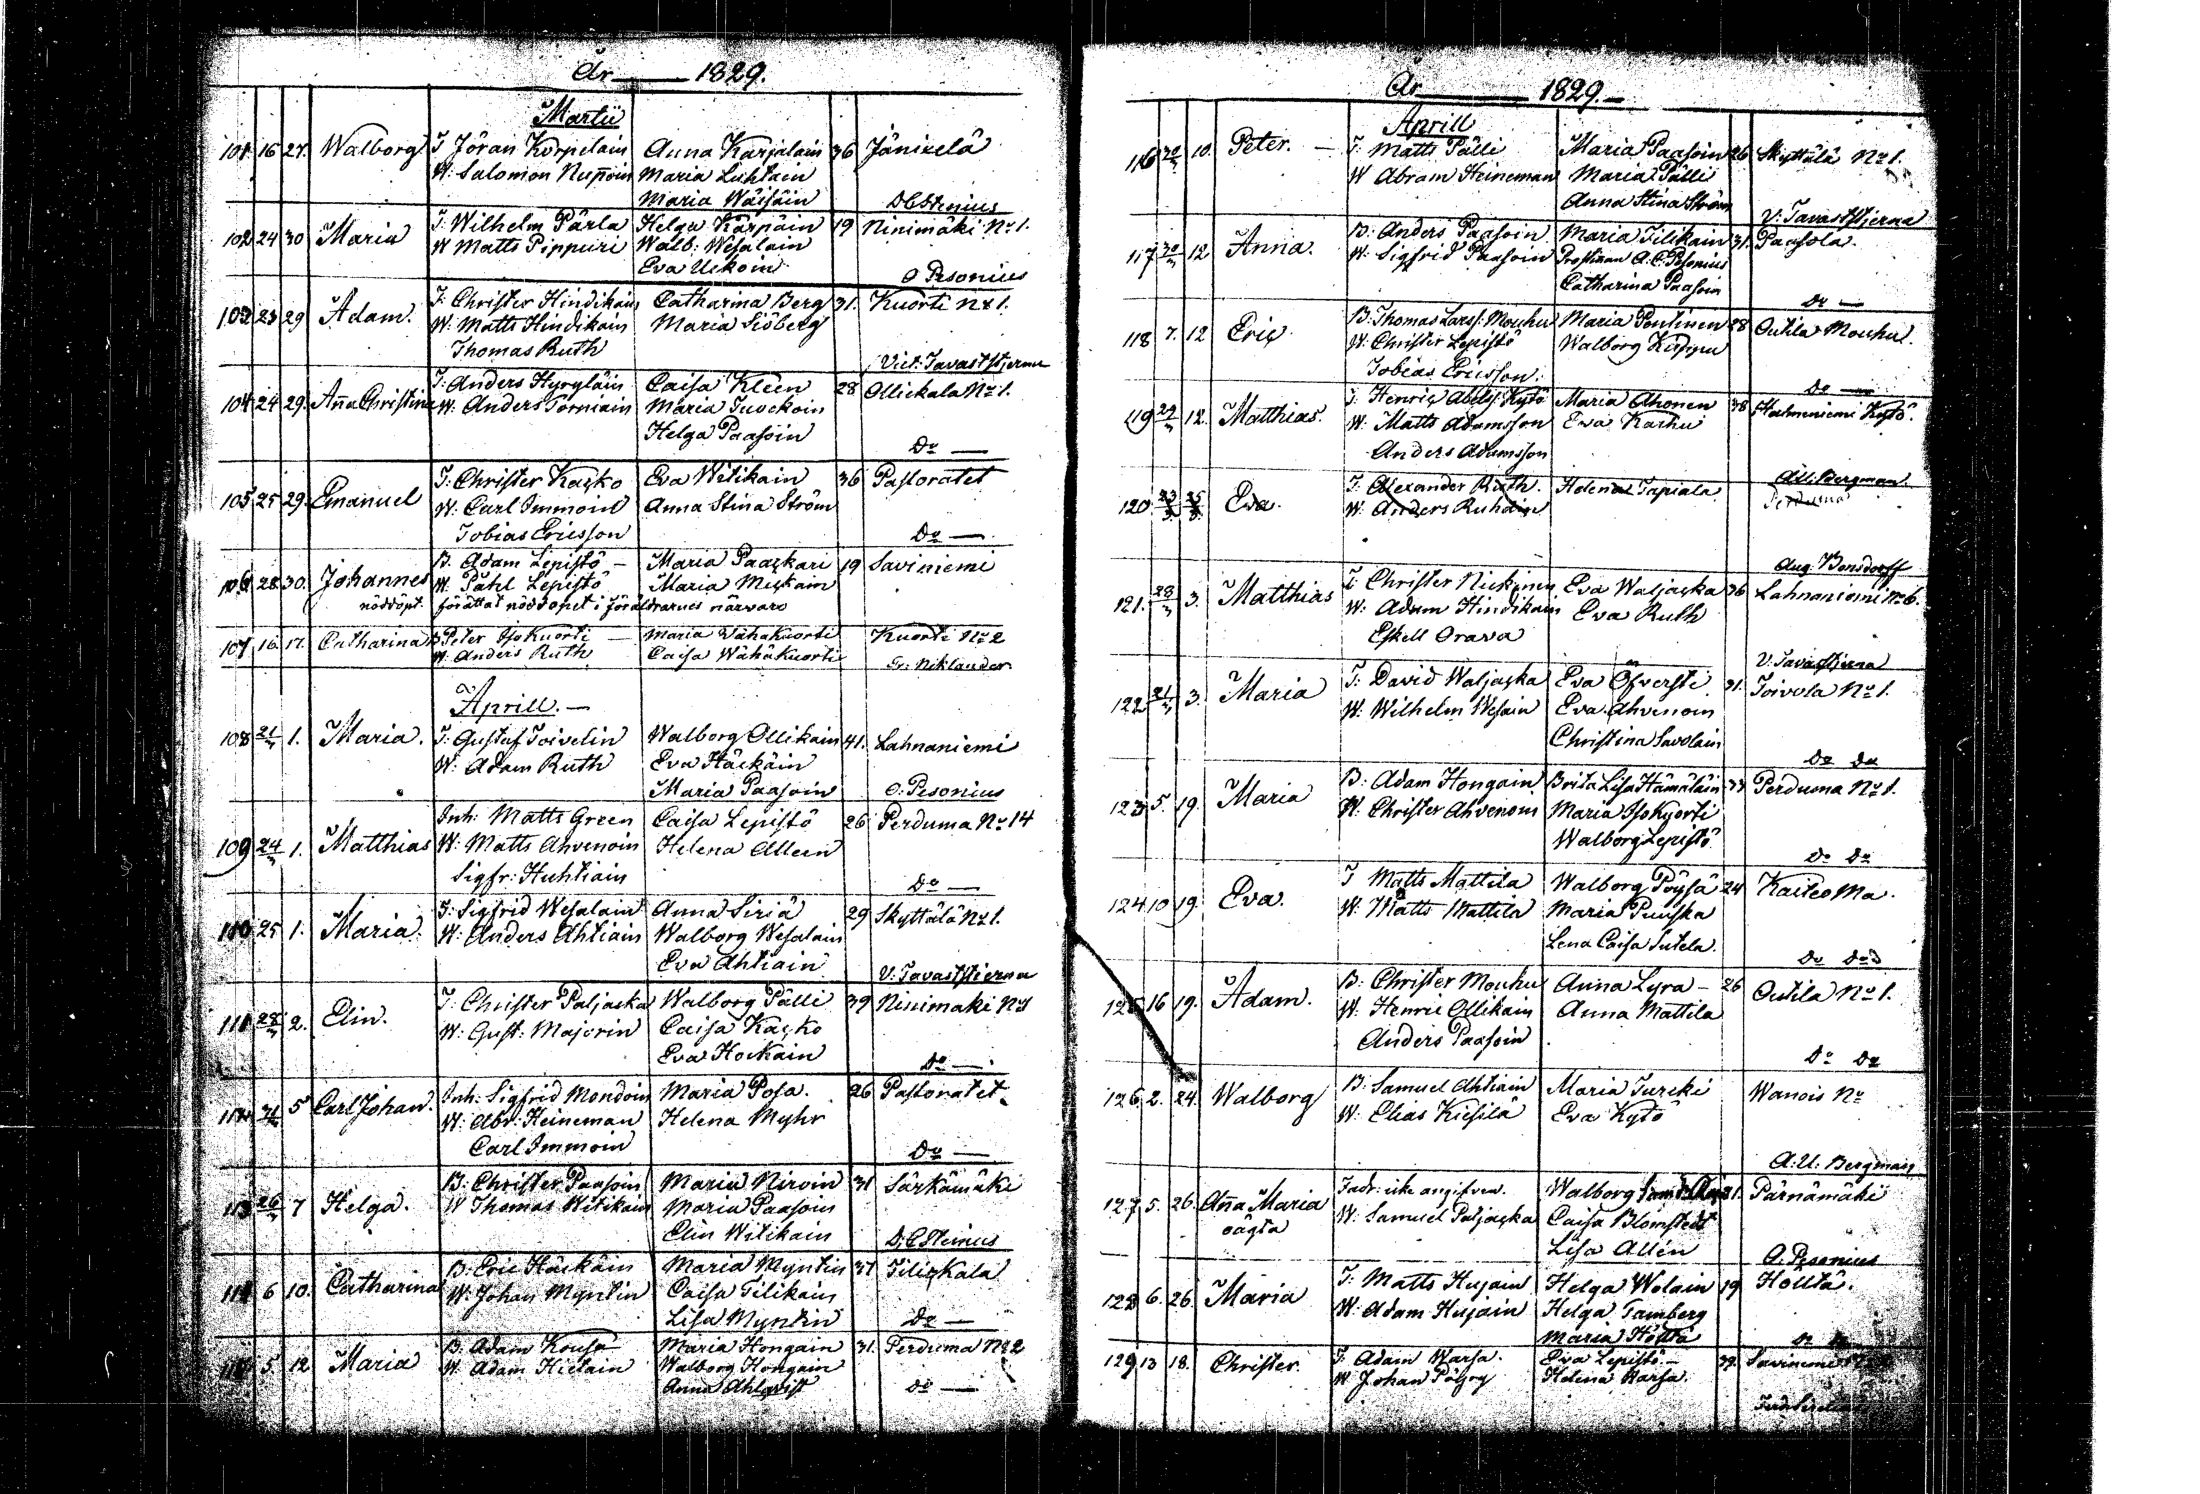 År 1829.
Martii
101 16 27. Walborg T Jöran Korpelain Anna Karjalain 36 Jänicelä
W: Salomon Nupoin Maria Luhtain
Maria Wäisäin
102 24 30 Maria T: Wilhelm Pärla Helga Kärpäin 19 Ninimäki No 1.
W Matts Pippuri Walb: Wesalain
Eva Uckoin O Pesonius
103 23 29 Adam. T: Christer Hindikain Catharina Berg 31. Kuorti No 1.
W: Matts Hindikain Maria Siöberg
Thomas Ruth Vict: Tavaststjerna
104 24 29. Anna Christina T: Anders Hyryläin Caisa Kleen 28 Ollickala No 1.
W: Anders Törniain Maria Tuockoin
Helga Paasoin Do —
105 25 29. Emanuel T: Christer Kacko Eva Witikain 36 Pastoratet
W: Carl Immoin Anna Stina Ström
Tobias Ericsson Do —
106 28 30. Johannes B. Adam Lepistö — Maria Paackari 19 Saviniemi
W. Påhl Lepistö Maria Muckain
nöddöpt. förättat nöddopet i föräldrarnes närvaro
107 16 17. Catharina B Peter Isokuorti — Maria Wähäkuorti Kuorti No 2
W Anders Ruth Caisa Wähäkuorti Gr: Niklander
Aprill. —
108 21/3 1. Maria. T: Gustaf Toivelin Walborg Ollikain 41. Lahnaniemi
W: Adam Ruth Eva Häckäin
Maria Paasoin O: Pesonius
109 24/3 1. Matthias Inh: Matts Green Caisa Lepistö 26 Perduma No 14
W: Matts Ahvenoin Helena Alleen
Sigfr: Huhtiain Do —
110 25 1. Maria. T: Sigfrid Wesalain Anna Siriä 29 Skyttälä No 1.
W: Anders Ahtiain Walborg Wesalain
Eva Ahtiain V: Tavaststjerna
111 28/3 2. Elin. T: Christer Paljacka Walborg Pälli 39 Ninimaki No 1
W: Gust: Majorin Caisa Kacko
Eva Hockain Do —
112 31/3 5 Carl Johan. Inh: Sigfrid Mondoin Maria Posa. 26 Pastoratet
W: Abr: Heineman Helena Myhr
Carl Immoin Do —
113 26/3 7 Helga. B: Christer Paasoin Maria Niroin 31 Särkämäki
W Thomas Witikain Maria Paasoin
Elin Witikain
114 6 10. Catharina B: Eric Häckäin Maria Myntin 37 Tilickala
W: Johan Myntin Caisa Tilikain
Lisa Myntin Do —
5 12 Maria B: Adam Kousa Maria Hongain 31. Perduma No 2
W: Adam Hietain Walborg Hongain
Anna Ahlqvist Do —
År 1829. —
Aprill
116 30/3 10. Peter. — T: Matts Pälli Maria Paasoin 26 Skyttälä No 1.
W Abram Heineman Maria Pälli
Anna Stina Ström V: Tavaststjerna
117 30/3 12 Anna. B: Anders Paasoin Maria Tilikain 31. Paasola.
W: Sigfrid Paasoin Prostinan A. C. Pesonius
Catharina Paasoin Do —
118 7. 12 Eric B: Thomas Larss: Mouhu Maria Pentinen 28 Outila Mouhu.
W: Christer Lepistö Walborg
Tobias Ericsson. Do —
119 29/3 12. Matthias. T: Henric Abelss: Kytö Maria Ahonen 38 Halmeniemi Kytö.
W: Matts Adamsson Eva Karhu
Anders Adamsson Bergman
120 Eva. T: Alexander Ruth. Helena Tapiala Perduma
W: Anders Ruhain
Aug: Bonsdorff
121. 28/3 3. Matthias T: Christer Nickinen Eva Waljacka 36 Lahnaniemi No 6.
W: Adam Hindikain Eva Ruth
Eskell Orava V: Tavaststjerna
122 21/3 3. Maria T: David Waljacka Eva Öfversti 31. Toivola No 1.
W: Wilhelm Wesain Eva Ahvenoin
Christina Savolain Do Do
123 5. 19. Maria B: Adam Hongain Brita Lisa Hämäläin 33 Perduma No 1.
W: Christer Ahvenoin Maria Isokyorti
Walborg Lepistö Do Do
124 10 19. Eva. T Matts Mattila Walborg Pöysä 24 Kaiteoma.
W: Matts Mattila Maria Puuska
Lena Caisa Sutela. Do Do
125 16 19. Adam. B: Christer Mouhu Anna Lyra — 26 Outila No 1.
W: Henric Ollikain Anna Mattila
Anders Paasoin Do Do
126 2. 24. Walborg B: Samuel Ahtiain Maria Turcki Wanois No
W: Elias Kiesilä Eva Kytö
A: U: Bergman
127 5. 26. Anna Maria Fadr: icke angifven. Walborg 21. Pärnämäki
oägta W: Samuel Paljacka Caisa Blomstedt
Lisa Allén O. Pesonius
128 6. 26. Maria T: Matts Hujain Helga Wolain 19 Hölltä.
W: Adam Hujain Helga Tamberg
Maria Höltta Do Do
129 13 18. Christer. T: Adam Warsa. Eva Lepistö — 39. Saviniemi
W Johan Pöyry Helena Warsa.